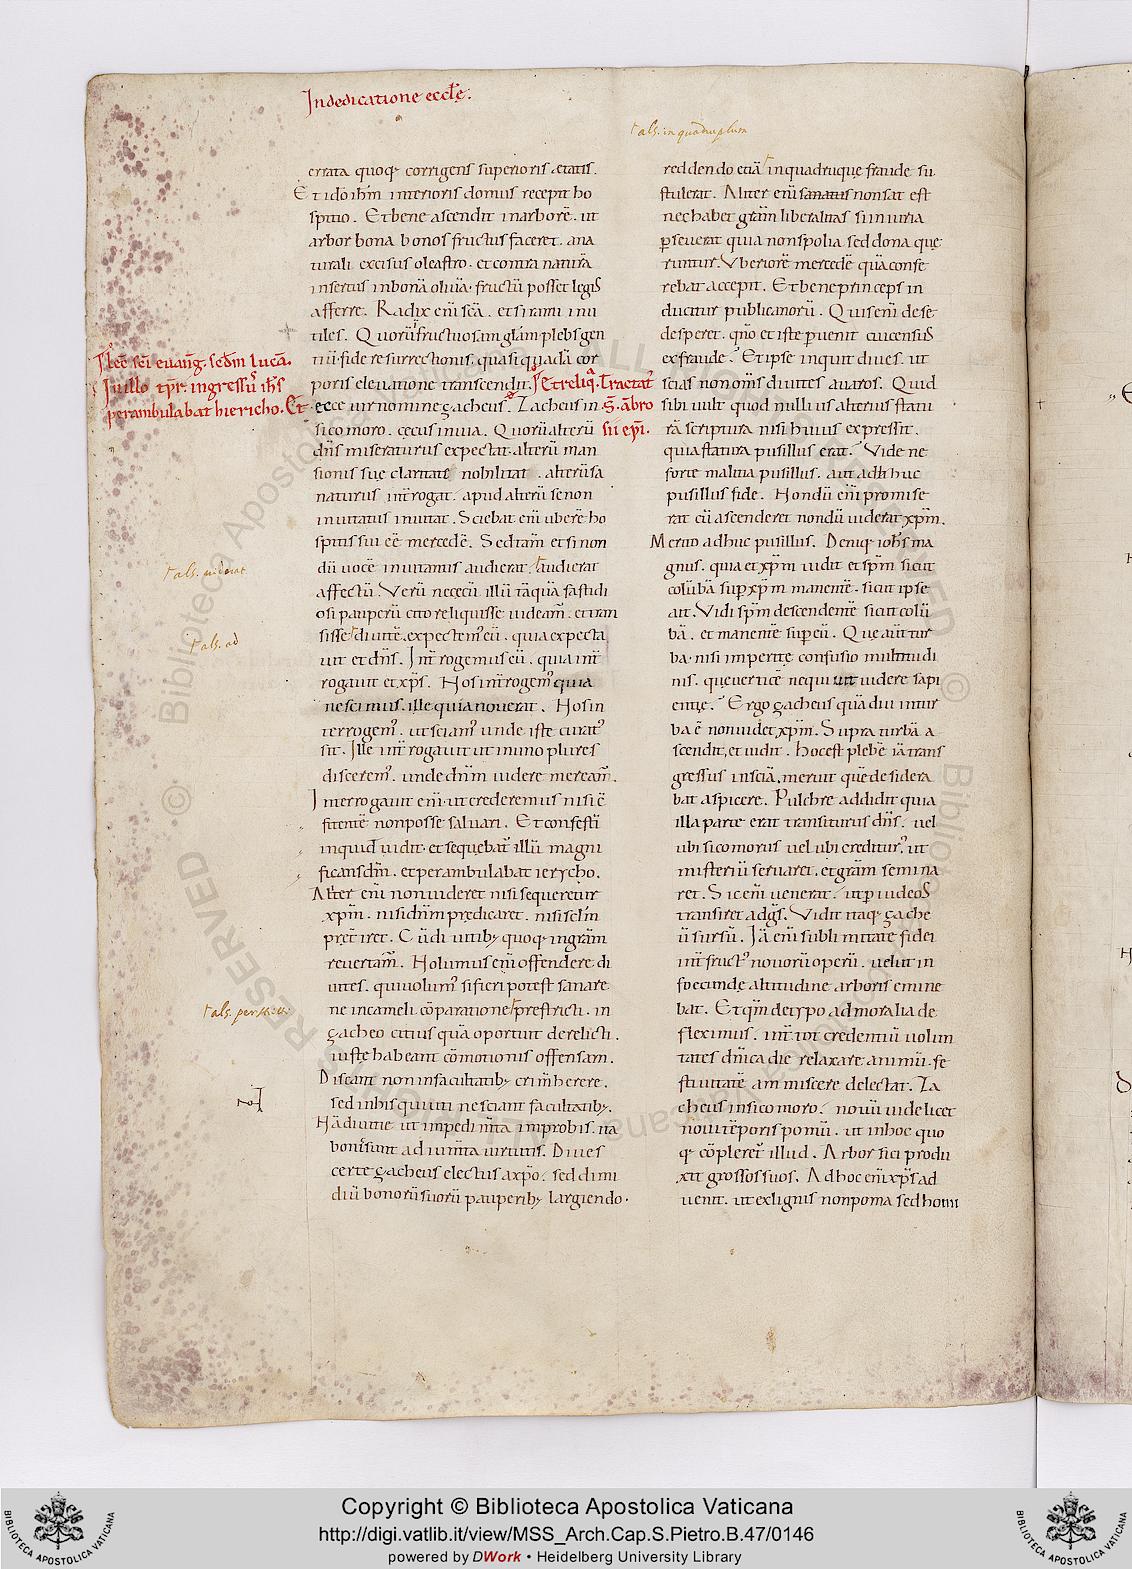 In dedicatione eccl̄e.
Ϯ als. in quadruplum
errata quoq; corrigens superioris ętatis.
Et idō ihm̄ interioris domus recepit ho
spitio. Et bene ascendit in arborē. ut
arbor bona bonos fructus faceret. ana
turali excisus oleastro. et contra naturā
insertus in bonā oliuā. fructū posset legis
afferre. Radix enī scā. etsi rami inu
tiles. Quorū fructuosam glām plebs gen
tiū fide resurrectionis. quasi quadā cor
poris eleuatione transcendit. Et reliq̄. Tractat᾽
ecce uir nomine zacheus. Zacheus in S. ābro
sicomoro. cęcus in uia. Quorū alterū sii ep̄i.
Lec̄ sc̄i euanḡ. scdm̄ lucā.
In illo tp̄r. ingressus ih̄s
perambulabat hiericho. Et
dn̄s miseraturus expectat. alterū man
sionis suę claritate nobilitat. alterū sa
naturus int̄rogat. apud alterū se non
inuitatus inuitat. Sciebat enī uberē ho
spitis sui eē mercedē. Sed tam̄ etsi non
dū uocē inuitantis audierat. audierat
Ϯ als. uiderat
affectū. Verū ne cęcū illū tāquā fastidi
osi pauperū cito reliquisse uideam̄. et tran
sisse diuitē. expectem᾽ eū. quia expecta
Ϯ als. ad
uit et dn̄s. Int̄rogemus eū. quia int̄
rogauit et xp̄s. Nos int̄rogem᾽ quia
nescimus. ille quia nouerat. Nos in
terrogem᾽. ut sciam᾽ unde iste curat᾽
sit. Ille int̄rogauit ut in uno plures
discerem᾽. unde dn̄m uidere meream̄.
Interrogauit enī. ut crederemus nisi c̄
fitentē non posse saluari. Et confestī
inquid uidit. et sequebat̄ illū magni
ficans dm̄. et perambulabat ierycho.
Aliter enī non uideret nisi sequeretur
xp̄m. nisi dn̄m predicaret. nisi sclm̄
pret̄iret. Cū diuitib; quoq; in grām
reuertam̄. Nolumus enī offendere di
uites. qui uolum᾽ si fieri potest sanare
ne in cameli cōparatione prestricti. in
Ϯ als.
zacheo citius quā oportuit derelicti.
iuste habeant cōmotionis offensam.
Discant non in facultatib; crim̄ herere.
sed in his qui uti nesciant facultatib;.
Nā diuitię ut impedim̄ta improbis. ita
bonis sunt adium̄ta uirtutis. Diues
certe zacheus electus a xp̄o. sed dimi
diū bonorū suorū pauperib; largiendo.
reddendo etiā in quadruque fraude su
stulerat. Aliter enī sanatus non sat est
nec habet grām liberalitas si iniuria
p̄seuerat quia non spolia sed dona que
runtur. Vberiorē mercedē quā confe
rebat accepit. Et bene princeps in
ducitur publicanorū. Quis enī de se
desperet. qn̄o et iste puenit cui census
ex fraude? Et ipse inquit diues. ut
scias non om̄s diuites auaros. Quid
sibi uult quod nullius alterius statu
rā scriptura nisi huius expressit.
quia statura pusillus erat? Vide ne
forte malitia pusillus. aut adhuc
pusillus fide. Nondū enī promise
rat cū ascenderet nondū uiderat xp̄m.
Merito adhuc pusillus. Deniq; ioh̄s ma
gnus. quia et xp̄m uidit et sp̄m sicut
colūbā sup xp̄m manentē. sicut ipse
ait. Vidi sp̄m descendentē sicut colū
bā. et manentē sup eū. Que aūt tur
ba. nisi imperitę confusio multitudi
nis. que uerticē nequiuit uidere sapi
entię? Ergo zacheus quā diu in tur
ba ē non uidet xp̄m. Supra turbā a
scendit, et uidit. hoc est plebē iā trans
gressus insciā, meruit quē desidera
bat aspicere. Pulchre addidit quia
illa parte erat transiturus dn̄s. uel
ubi sicomorus uel ubi crediturus. ut
misteriū seruaret. et grām semina
ret. Sic enī uenerat. ut p iudeos
transiret ad ḡs. Vidit itaq; zache
ū sursū. Iā enī sublimitate fidei
int̄ fruct᾽ nouorū operū. uelut in
fęcundę altitudine arboris emine
bat. Et qm̄ de typo ad moralia de
flexim᾽. int̄ tot credentiū uolun
tates dn̄ica die relaxare animū. fe
stiuitatē ammiscere delectat. Za
cheus in sicomoro. nouū uidelicet
noui tēporis pomū. ut in hoc quo
q; cōpleret̄ illud. Arbor fici produ
xit grossos suos. Ad hoc enī xp̄s ad
uenit. ut ex lignis non poma sed homi
Copyright © Biblioteca Apostolica Vaticana
http://digi.vatlib.it/view/MSS_Arch.Cap.S.Pietro.B.47/0146
powered by DWork • Heidelberg University Library